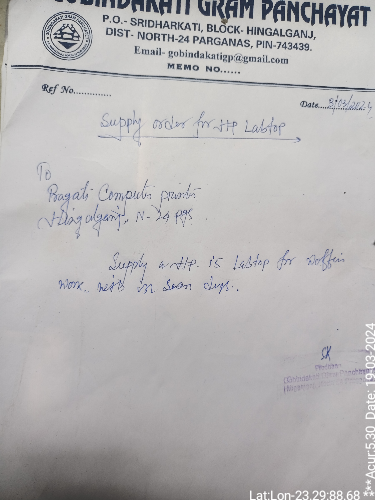 GOBINDAKATI GRAM PANCHAYAT
P.O.- SRIDHARKATI, BLOCK- HINGALGANJ,
DIST- NORTH-24 PARGANAS, PIN-743439.
Email- gobindakatigp@gmail.com
MEMO NO......
Ref No.............
Date 8/03/2024
Supply order for HP Labtop
To
Bagati Computer
Hingalganj, N-24 pgs.
Supply a H.P. i5 Labtop for
work. with in Seven days.
Lat:Lon-23.29:88.68
***Acur:5.30 Date: 19-03-2024